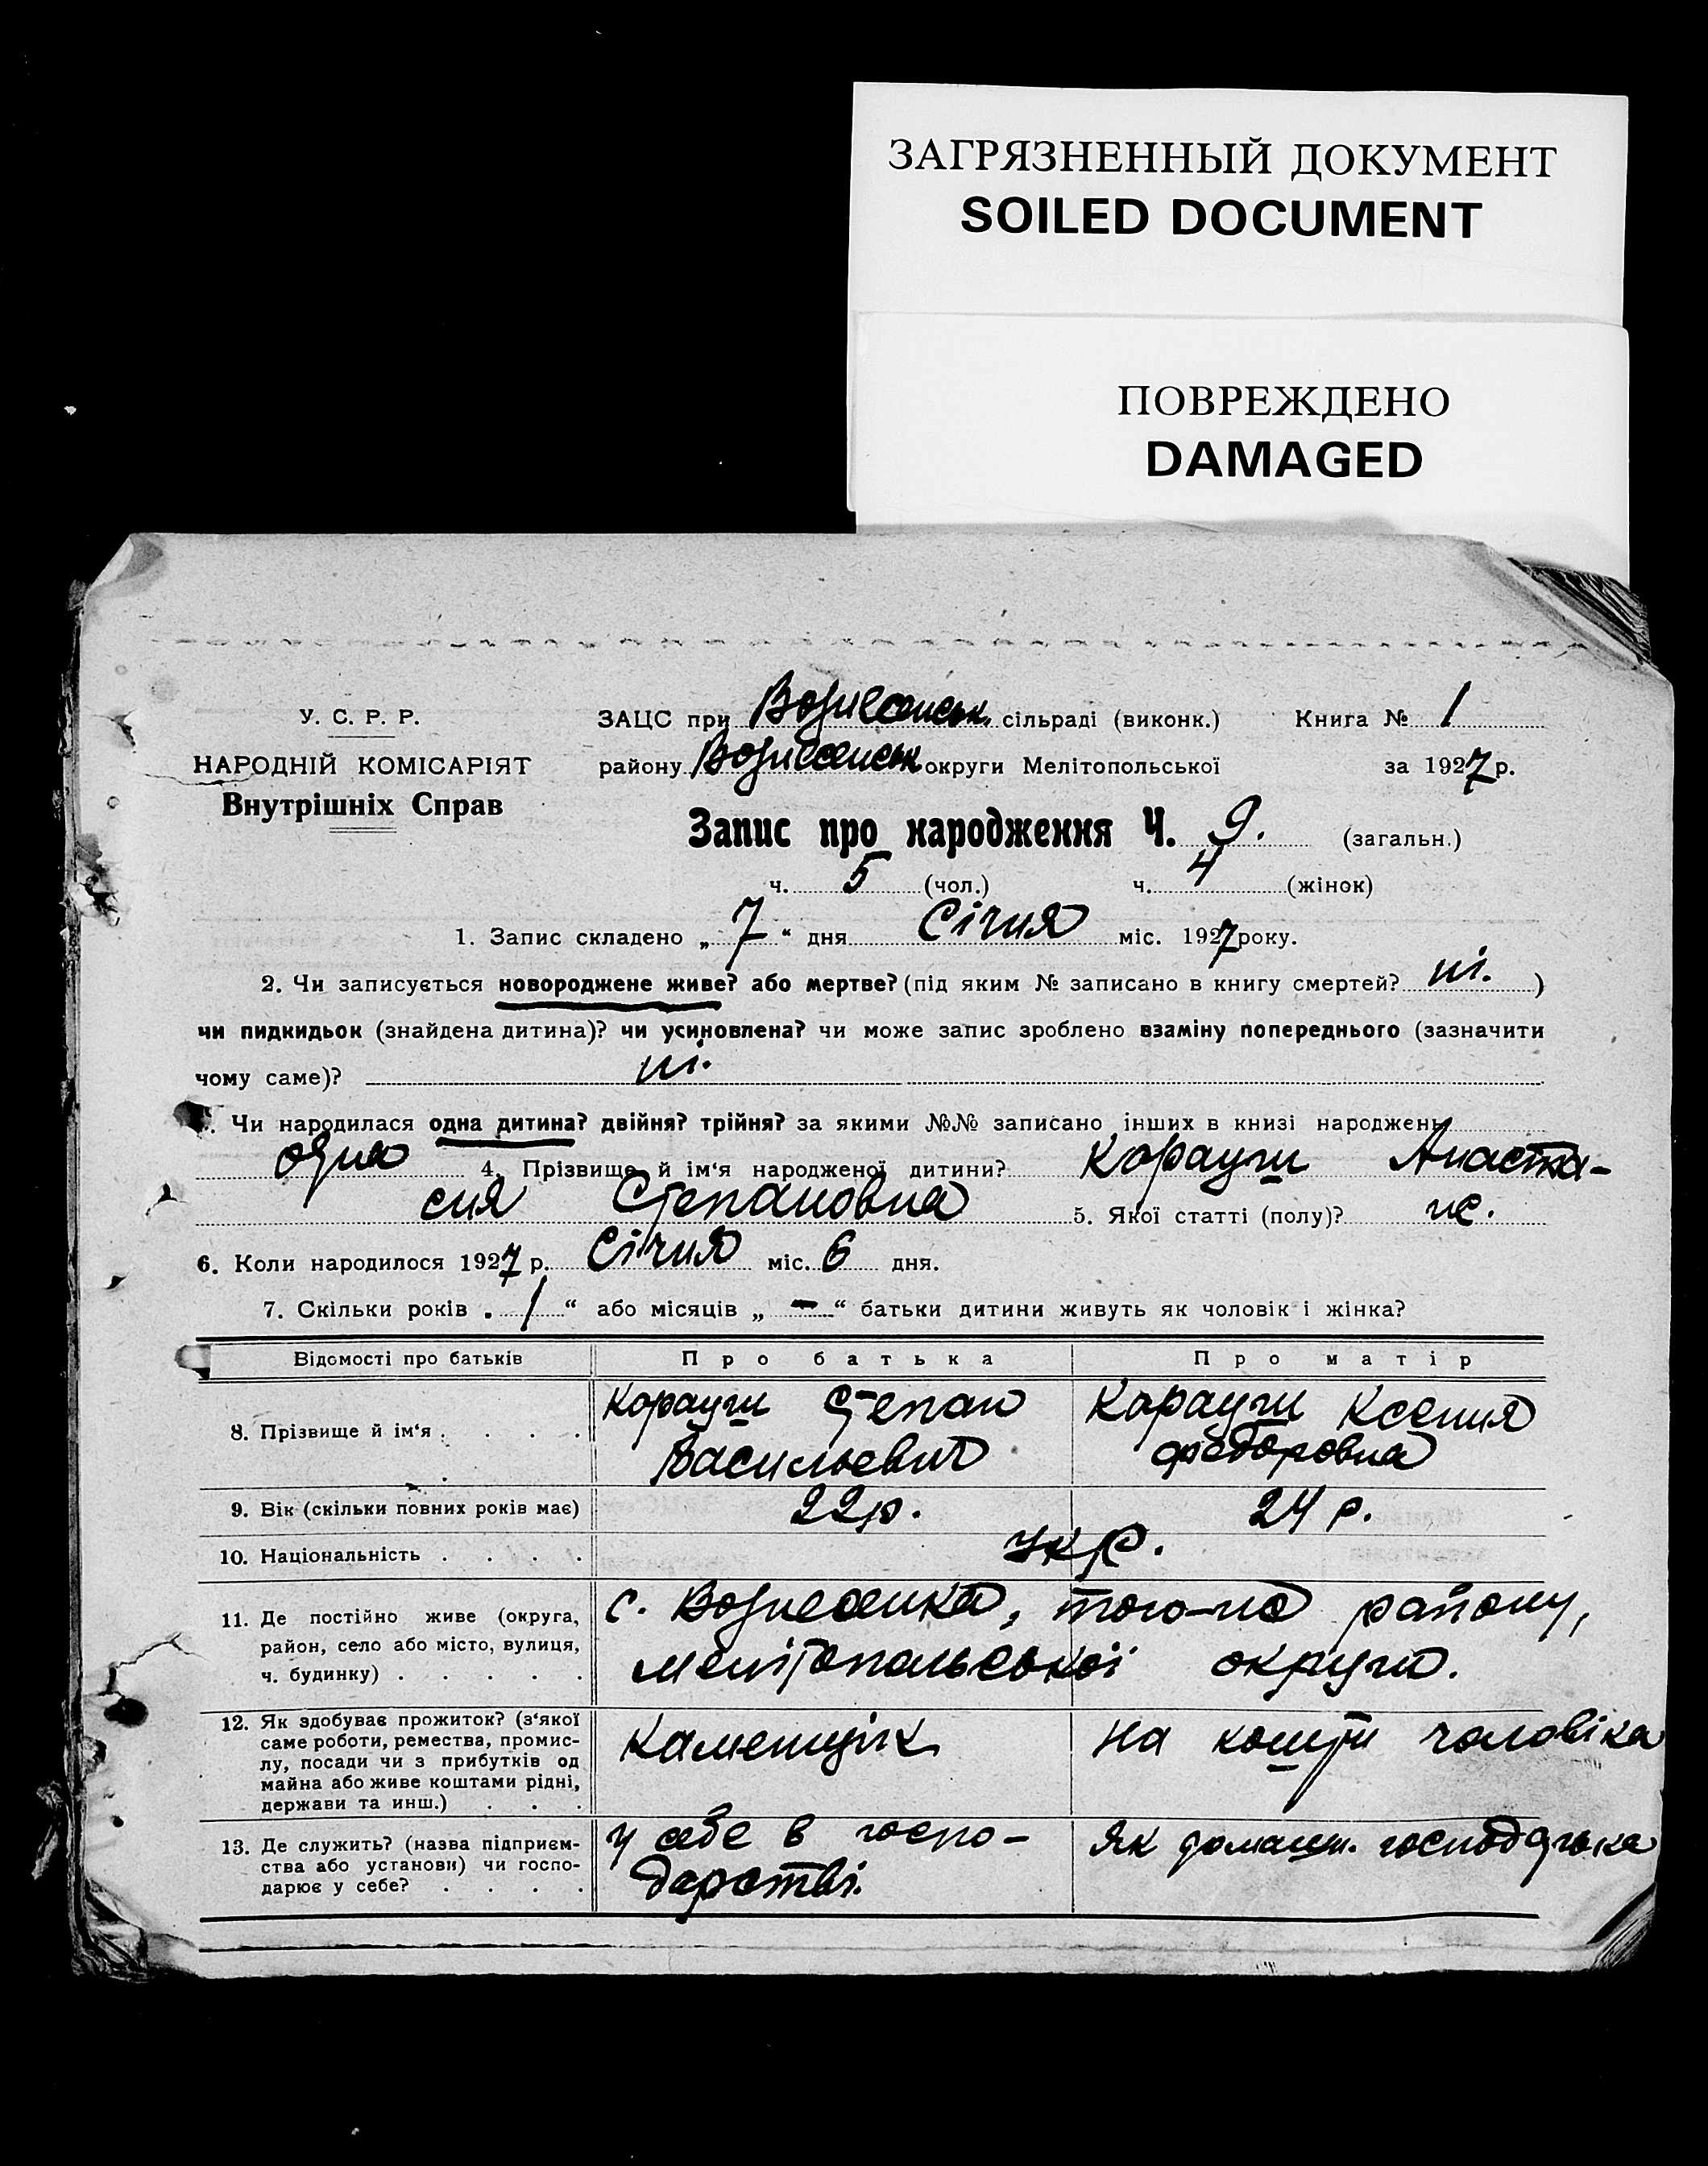 ЗАГРЯЗНЕННЫЙ ДОКУМЕНТ
SOILED DOCUMENT
ПОВРЕЖДЕНО
DAMAGED
У. С. Р. Р.
НАРОДНІЙ КОМІСАРІЯТ
Внутрішніх Справ
ЗАЦС при Вознесенськ. сільраді (виконк.) Книга № 1
району Вознесенськ округи Мелітопольської за 1927 р.
Запис про народження Ч. 9. (загальн.)
ч. 5 (чол.) ч. 4 (жінок)
1. Запис складено „ 7 “ дня Січня міс. 1927 року.
2. Чи записується новороджене живе? або мертве? (під яким № записано в книгу смертей? ні. )
чи пидкидьок (знайдена дитина)? чи усиновлена? чи може запис зроблено взаміну попереднього (зазначити
чому саме)? ні.
. Чи народилася одна дитина? двійня? трійня? за якими №№ записано інших в книзі народжень
одна 4. Прізвище й ім‘я народженої дитини? Корауш Анаста-
сия Степановна 5. Якої статті (полу)? ж.
6. Коли народилося 1927 р. Січня міс. 6 дня.
7. Скільки років „ 1 “ або місяців „ - “ батьки дитини живуть як чоловік і жінка?
Відомості про батьків Про батька Про матір
8. Прізвище й ім‘я . . . . Корауш Степан Корауш Ксения
Васильевич Федоровна
9. Вік (скільки повних років має) 22 р. 24 р.
10. Національність . . . . укр.
11. Де постійно живе (округа,
район, село або місто, вулиця,
ч. будинку) . . . . .
с. Вознесенка, того-ж району,
Мелітопольської округи.
12. Як здобуває прожиток? (з‘якої
саме роботи, ремества, промис-
лу, посади чи з прибутків од
майна або живе коштами рідні,
держави та инш.) . . .
Каменщік На кошти чоловіка
13. Де служить? (назва підприєм-
ства або установи) чи госпо-
дарює у себе? . . . .
у себе в госпо-
дарстві.
Як домашн. господарька